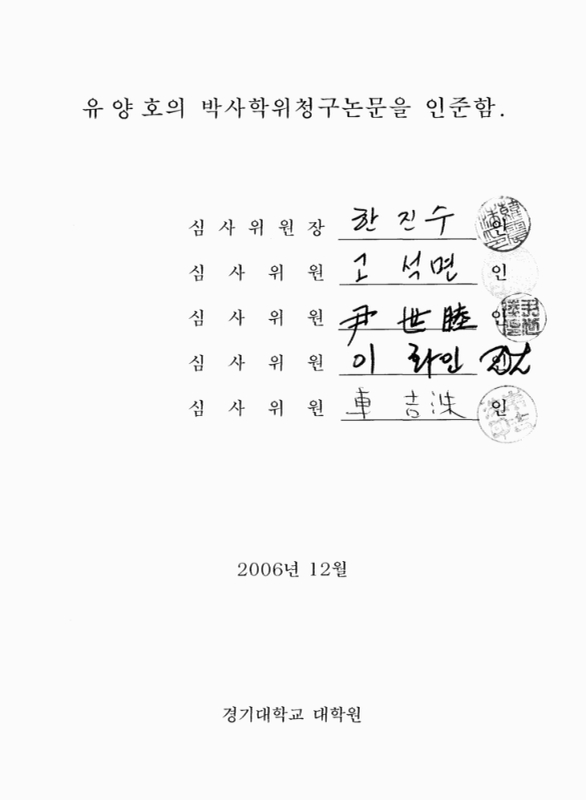 유양호의 박사학위청구논문을 인준함.
심사위원장 한진수 인
심사위원 고석면 인
심사위원 尹世睦 인
심사위원 이화인
심사위원 車吉洙 인
2006년 12월
경기대학교 대학원